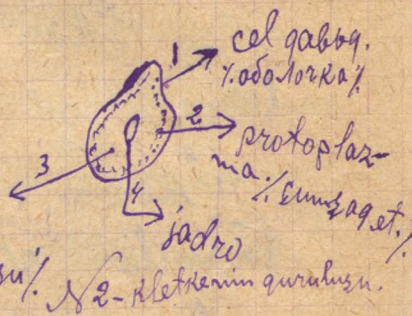 1
cel qabьq.
٪ оболочка ٪
2
protoplaz-
ma. ٪
3
4
jadro
N 2 - kletkenin qurulušu.